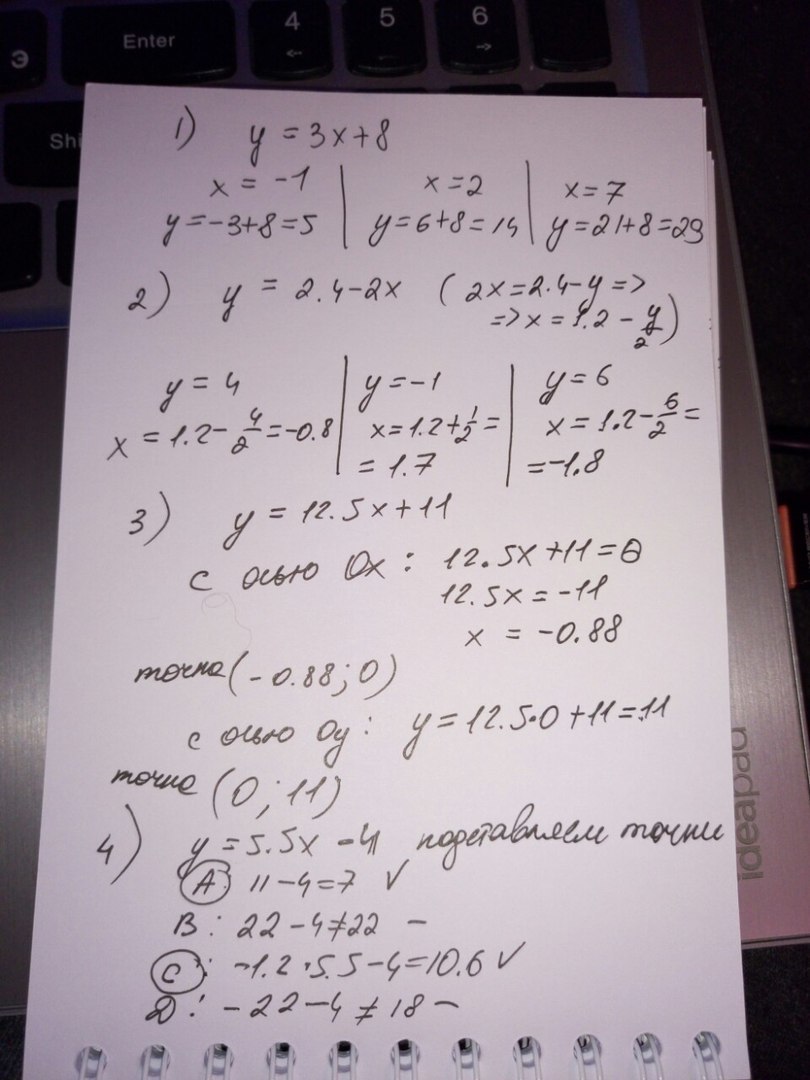 Э
Enter
4
←
5
6
→
Shi
1) y = 3x+8
x = -1 | x=2 | x=7
y=-3+8=5 | y=6+8=14 | y=21+8=29
2) y = 2.4-2x (2x=2.4-y =>
=> x = 1.2 - y/2)
y = 4 | y=-1 | y=6
x =1.2- 4/2 =-0.8 | x=1.2+1/2= | x= 1.2-6/2=
= 1.7 | =-1.8
3) y = 12.5x+11
с осью Ox: 12.5x+11=0
12.5x = -11
x = -0.88
точка (-0.88; 0)
с осью Oy: y=12.5·0+11=11
точка (0; 11)
4) y=5.5x-4 подставляем точки
A: 11-4=7 ✓
B: 22-4≠22 -
C: -1.2·5.5-4=10.6 ✓
D: -22-4≠18 -
ideapad